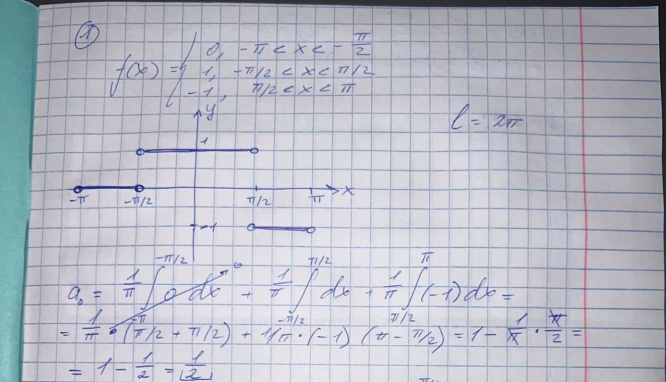 1
0, -π < x < -π/2
f(x) = 1, -π/2 < x < π/2
-1, π/2 < x < π
y
l = 2π
1
-π -π/2 π/2 π x
-1
a₀ = 1/π ∫_{-π}^{-π/2} 0 dx + 1/π ∫_{-π/2}^{π/2} dx + 1/π ∫_{π/2}^{π} (-1) dx =
= 1/π · (π/2 + π/2) + 1/π · (-1) (π - π/2) = 1 - 1/π · π/2 =
= 1 - 1/2 = 1/2